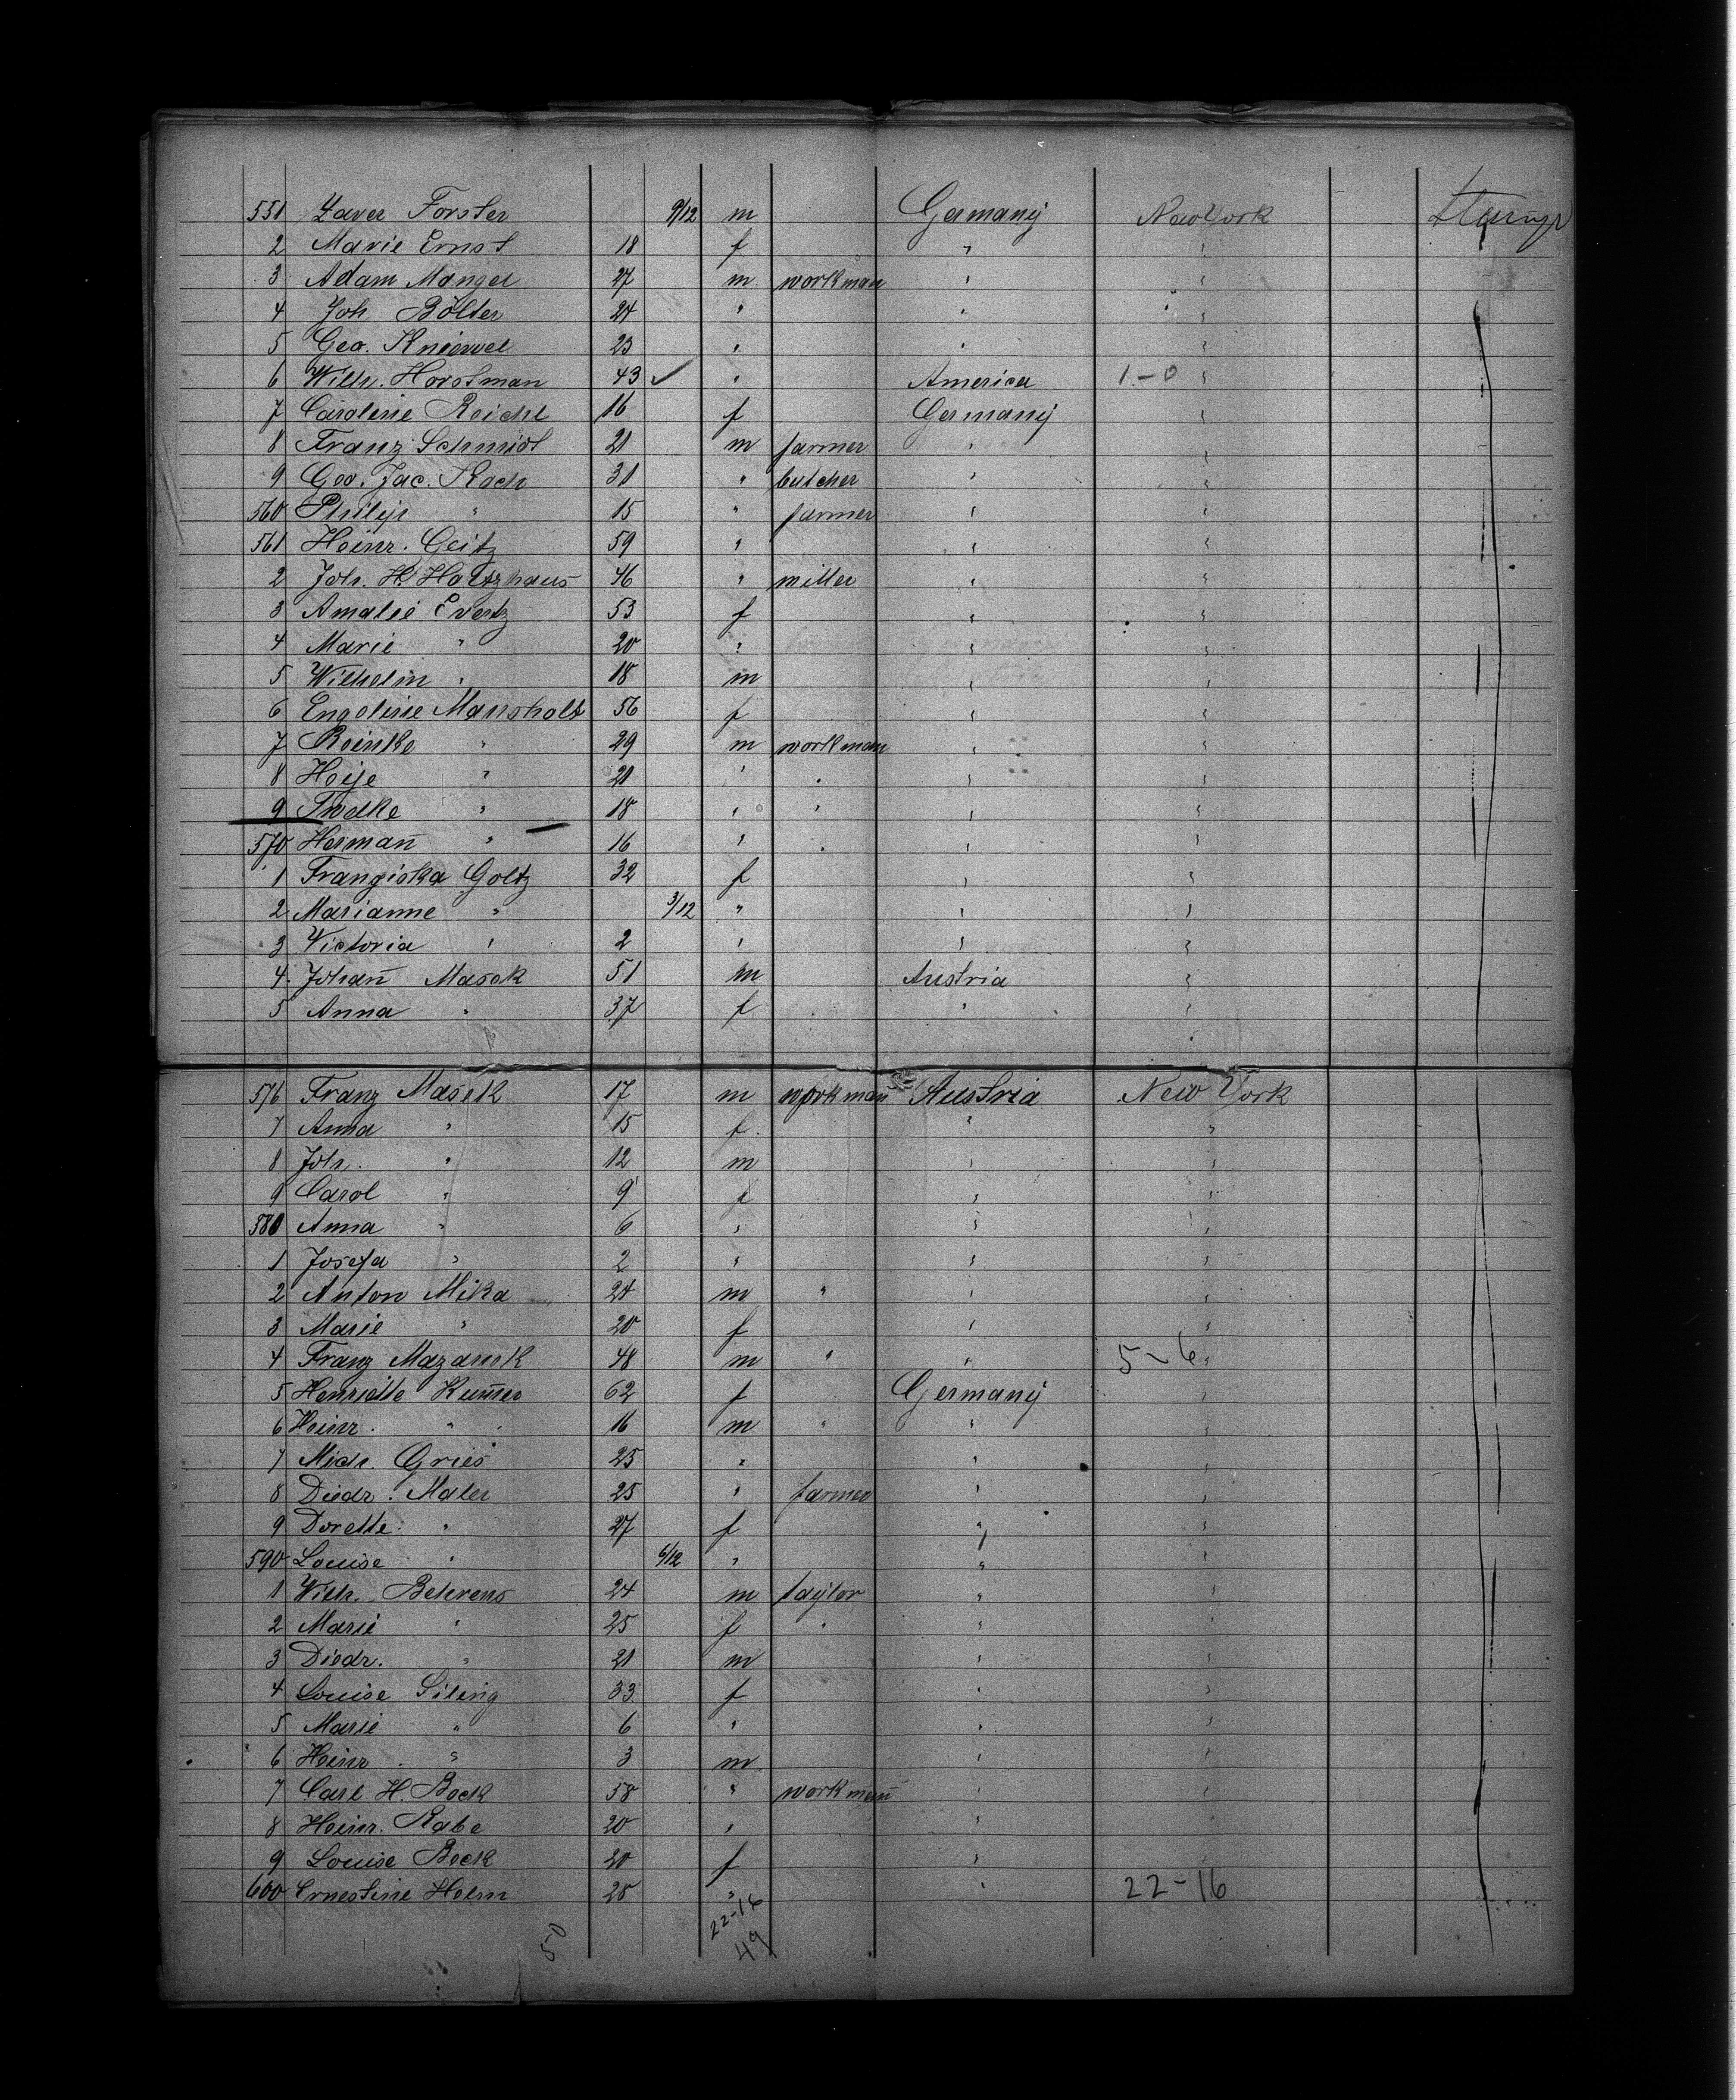 551 Xaver Forster 9/12 m Germany New York
2 Marie Ernst 18 f " "
3 Adam Mangel 27 m workman " "
4 Joh. Bölter 24 " " "
5 Geo. Kniewel 23 " " "
6 Wilh. Horstman 43 ✓ " America 1-0 "
7 Caroline Reichl 16 f Germany "
8 Franz Schmidt 21 m farmer " "
9 Geo. Jac. Koch 31 " butcher " "
560 Philip " 15 " farmer " "
561 Heinr. Geitz 59 " " "
2 Joh. H. Holtzhaus 46 " miller " "
3 Amalie Evertz 53 f " "
4 Marie " 20 " " "
5 Wilhelm " 18 m " "
6 Engeline Mansholt 56 f " "
7 Reinke " 29 m workman " "
8 Heije " 21 " " " "
9 " 18 " " " "
570 Herman̄ " 16 " " " "
1 Franziska Goltz 32 f " "
2 Marianne " 3/12 " " "
3 Victoria " 2 " " "
4 Johan̄ Masek 51 m Austria "
5 Anna " 37 f " "
576 Franz Masek 17 m workman̄ Austria New York
7 Anna " 15 f " "
8 Joh. " 12 m " "
9 Carol " 9 f " "
580 Anna " 6 " " "
1 Josefa " 2 " " "
2 Anton Mika 24 m " " "
3 Marie " 20 f " "
4 Franz Mazanek 48 m " " 5-6 "
5 Henriette Kum̄er 62 f Germany "
6 Heinr. " 16 m " " "
7 Mich. Gries 25 " " "
8 Diedr. Maler 25 " farmer " "
9 Dorette " 27 f " "
590 Louise " 6/12 " " "
1 Wilh. Behrens 24 m taylor " "
2 Marie " 25 f " " "
3 Diedr. " 21 m " "
4 Louise Sileng 33 f " "
5 Marie " 6 " " "
6 Heinr. " 3 m " "
7 Carl H. Bock 58 " workman̄ " "
8 Heinr. Rabe 20 " " "
9 Louise Bock 20 f " "
600 Ernestine Holm 28 " " 22-16
22-16
50 49